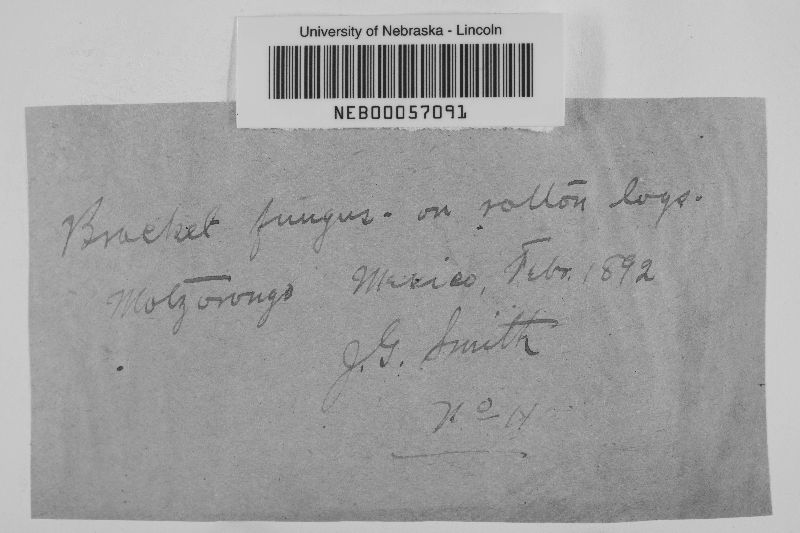 University of Nebraska - Lincoln
NEB00057091
Bracket fungus - on rotten logs.
Motzorongo Mexico, Febr. 1892
J.G. Smith
No 14